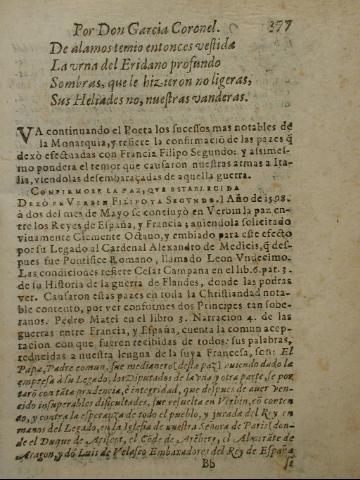 Por Don Garcia Coronel. 377
De alamos temio entonces vestida
La vrna del Eridano profundo
Sombras, que le hizieron no ligeras,
Sus Heliades no, nuestras vanderas.
VA continuando el Poeta los sucessos mas notables de
la Monarquia, y refiere la confirmació de las pazes q̃
dexò efectuadas con Francia Filipo Segundo: y assimes-
mo pondera el temor que causaron nuestras armas a Ita-
lia, viendolas desembaraçadas de aquella guerra.
CONFIRMOSE LA PAZ, QVE ESTABLECIDA
DEXÒ EN VERBIN FILIPO YA SEGVNDO.] Año de 1598.
à dos del mes de Mayo se concluyò en Verbin la paz en-
tre los Reyes de España, y Francia; aniendola solicitado
viuamente Clemente Octauo, y embiado para este efecto
por su Legado al Cardenal Alexandro de Medicis, q̃ des-
pues fue Pontifice Romano, llamado Leon Vndecimo.
Las condiciones refiere Cesar Campana en el lib. 6. par. 3.
de su Historia de la guerra de Flandes, donde las podras
ver. Causaron estas pazes en toda la Christiandad nota-
ble contento, por ver conformes dos Principes tan sobe-
ranos. Pedro Matei en el libro 3. Narracion 4. de las
guerras entre Francia, y España, cuenta la comun acep-
tacion con que fueren recibidas de todos: sus palabras,
reducidas a nuestra lengua de la suya Francesa, son: El
Papa, Padre comun, fue medianero [desta paz] auiendo dado la
empresa à su Legado, los Diputados de la vna y otra parte, se por
taró con tata prudencia, è integridad, que despues de auer ven-
cido insuperables dificultades, fue resuelta en Verbin, cō conten
to, y contra la esperaça de todo el pueblo, y jurada del Rey en
manos del Legado, en la Iglesia de nuestra Señora de Paris [don-
de el Duque de Ariscot, el Cōde de Arēberg, el Almirāte de
Aragon, y dō Luis de Velasco Embaxadores del Rey de España
Bb se